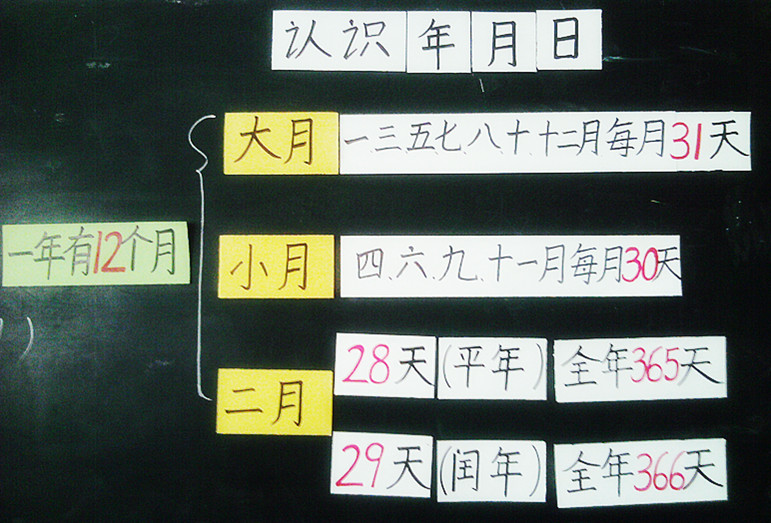 认识年月日
大月 一三五七、八、十、十二月每月31天
一年有12个月
小月 四、六、九、十一月每月30天
二月
28天 (平年) 全年365天
29天 (闰年) 全年366天